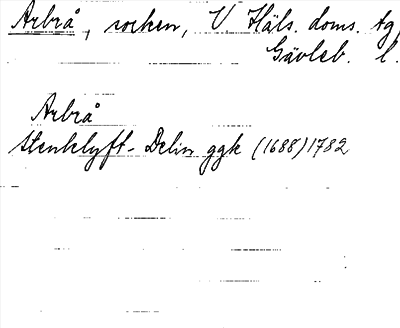 Arbrå, socken, V Häls. doms. tg,
Gävleb. l.
Arbrå
Stenklyft- Delin ggk (1688) 1782